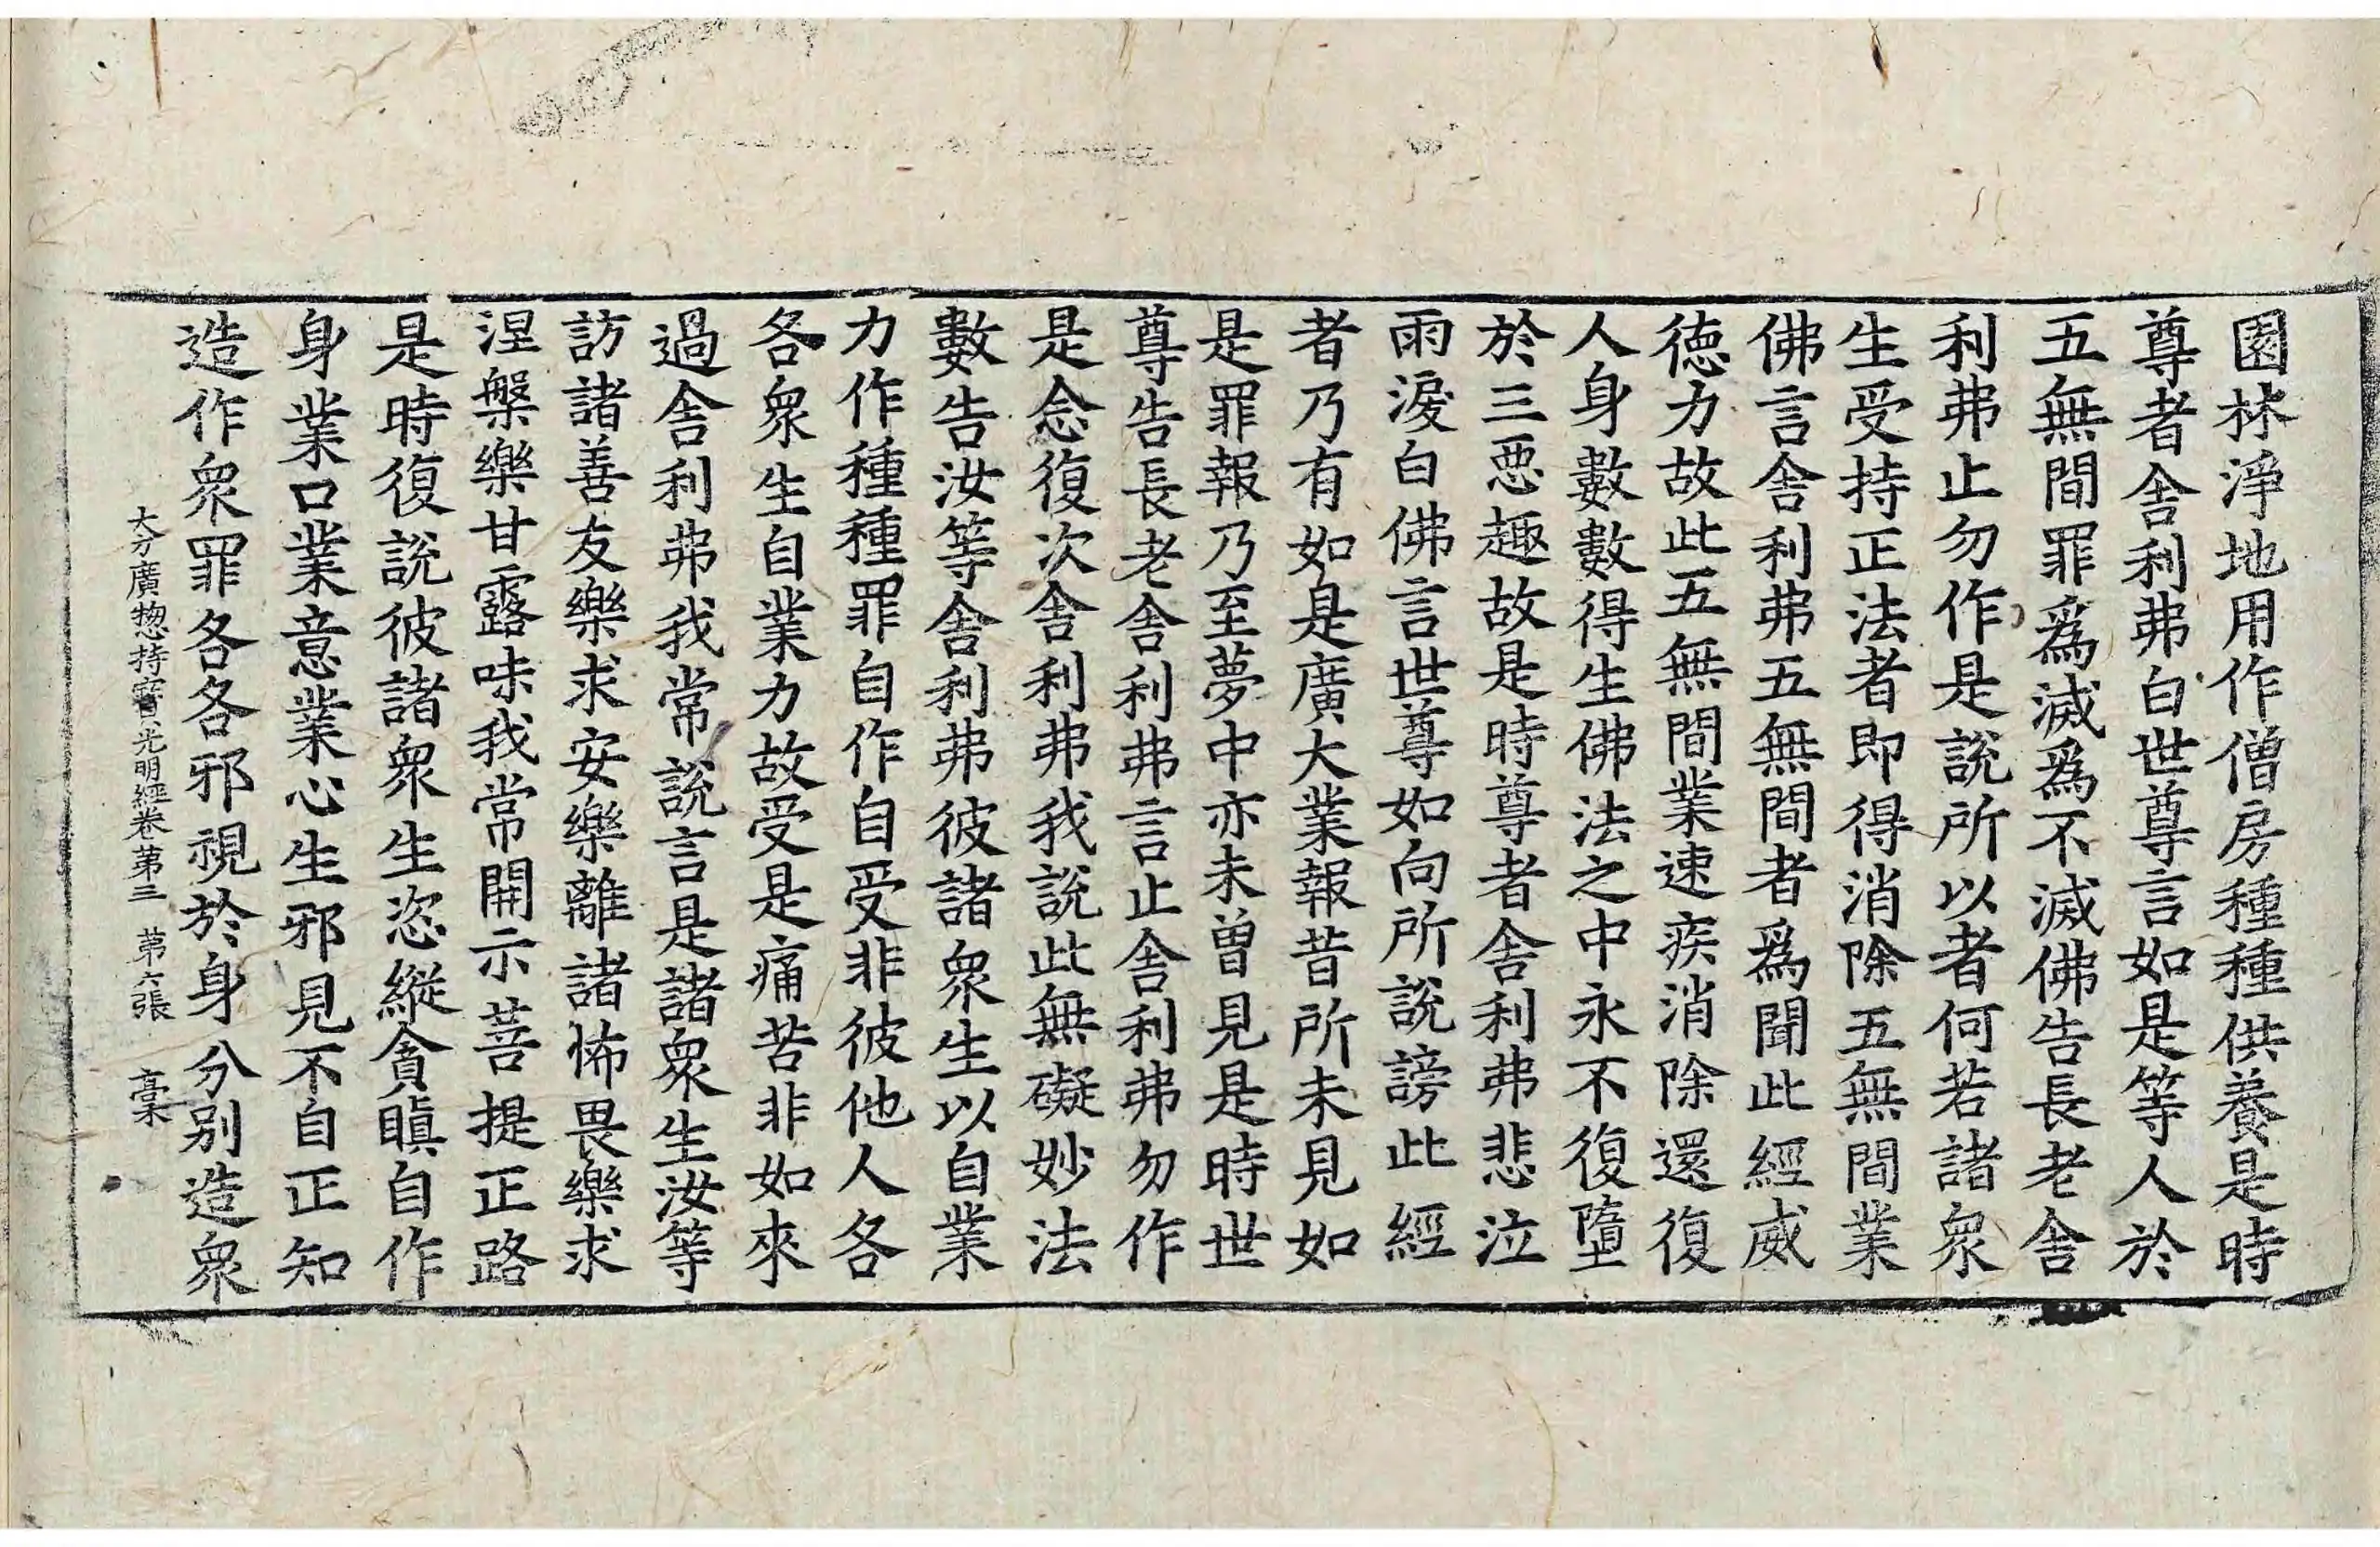 園林淨地用作僧房種種供養是時
尊者舍利弗白世尊言如是等人於
五無間罪爲滅爲不滅佛告長老舍
利弗止勿作是說所以者何若諸衆
生受持正法者即得消除五無間業
佛言舍利弗五無間者爲聞此經威
徳力故此五無間業速疾消除還復
人身數數得生佛法之中永不復墮
於三惡趣故是時尊者舍利弗悲泣
雨淚白佛言世尊如向所說謗此經
者乃有如是廣大業報昔所未見如
是罪報乃至夢中亦未曽見是時世
尊告長老舍利弗言止舍利弗勿作
是念復次舍利弗我說此無礙妙法
數告汝等舍利弗彼諸衆生以自業
力作種種罪自作自受非彼他人各
各衆生自業力故受是痛苦非如來
過舍利弗我常說言是諸衆生汝等
訪諸善友樂求安樂離諸怖畏樂求
涅槃樂甘露味我常開示菩提正路
是時復說彼諸衆生恣縱貪瞋自作
身業口業意業心生邪見不自正知
造作衆罪各各邪視於身分別造衆
大方廣惣持寶光明經卷第三 第六張 槀